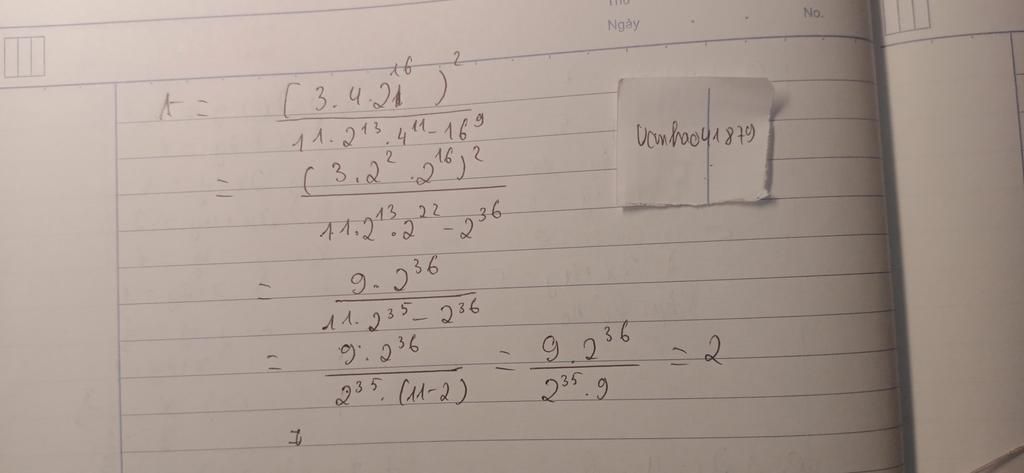 Thứ
Ngày
No.
A = (3.4.2^16)^2 / 11.2^13.4^11-16^9
Vcnhao41879
= (3.2^2.2^16)^2 / 11.2^13.2^22-2^36
= 9.2^36 / 11.2^35-2^36
= 9.2^36 / 2^35.(11-2) = 9.2^36 / 2^35.9 = 2